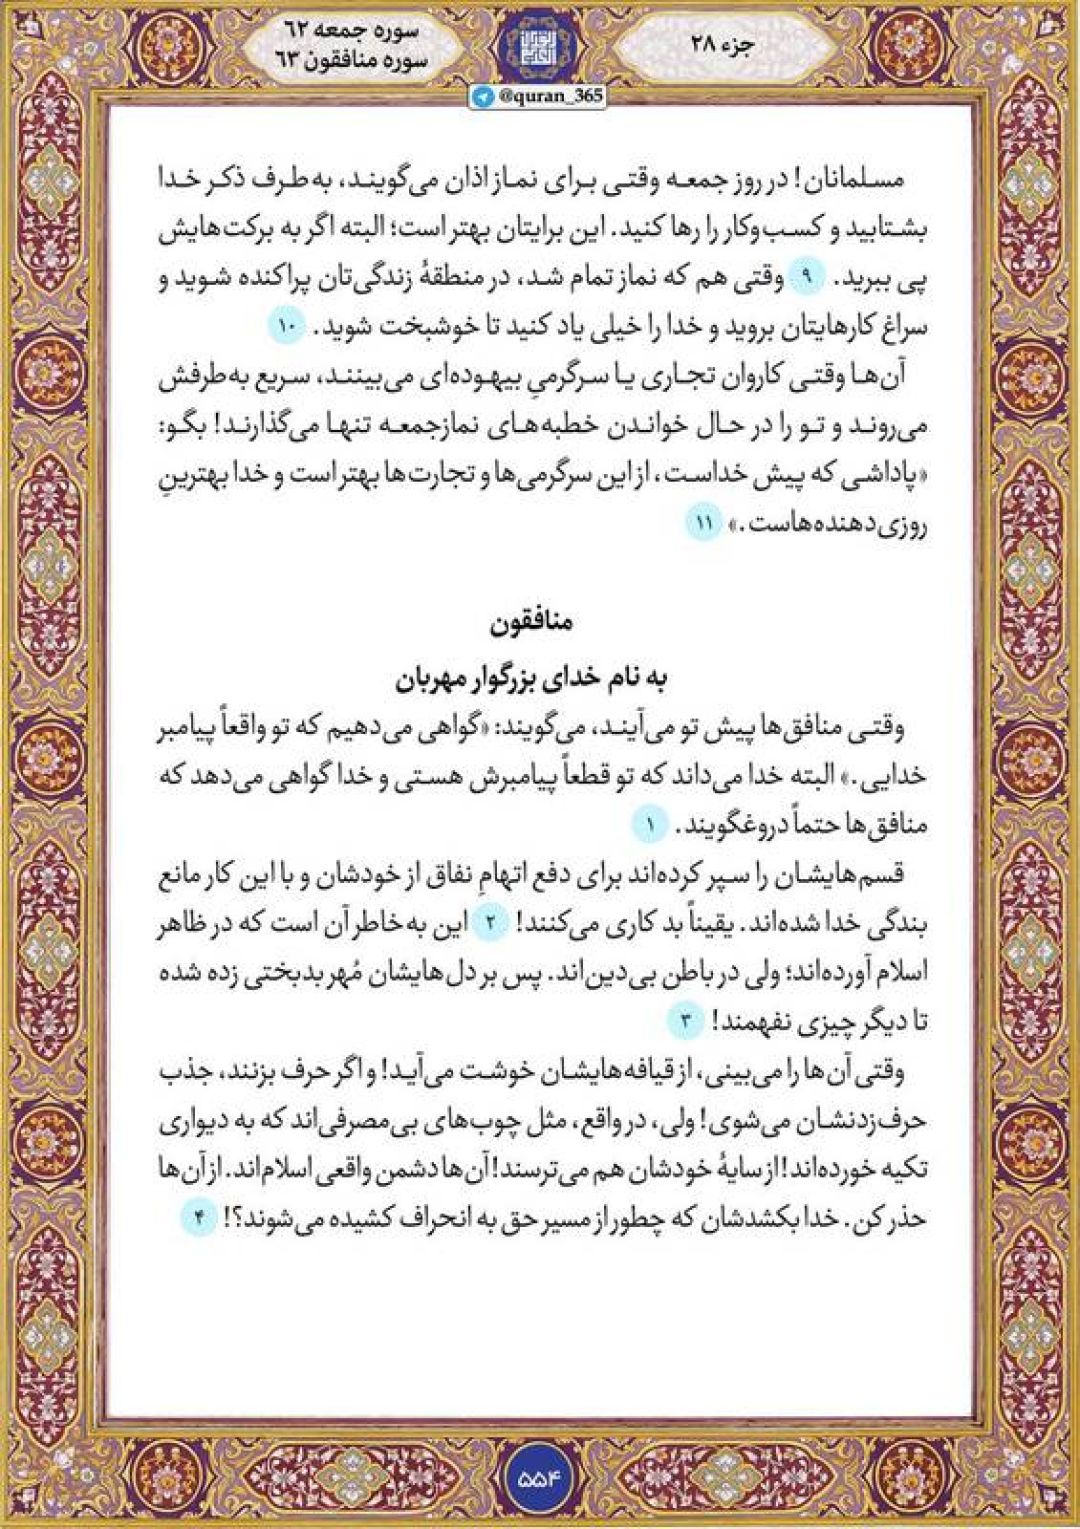 جزء ۲۸
سوره جمعه ۶۲
سوره منافقون ۶۳
@quran_365
مسلمانان! در روز جمعه وقتی برای نماز اذان می‌گویند، به‌طرف ذکر خدا
بشتابید و کسب‌وکار را رها کنید. این برایتان بهتر است؛ البته اگر به برکت‌هایش
پی ببرید. ۹ وقتی هم که نماز تمام شد، در منطقهٔ زندگی‌تان پراکنده شوید و
سراغ کارهایتان بروید و خدا را خیلی یاد کنید تا خوشبخت شوید. ۱۰
آن‌ها وقتی کاروان تجاری یا سرگرمیِ بیهوده‌ای می‌بینند، سریع به‌طرفش
می‌روند و تو را در حال خواندن خطبه‌های نمازجمعه تنها می‌گذارند! بگو:
«پاداشی که پیش خداست، از این سرگرمی‌ها و تجارت‌ها بهتر است و خدا بهترینِ
روزی‌دهنده‌هاست.» ۱۱
منافقون
به نام خدای بزرگوار مهربان
وقتی منافق‌ها پیش تو می‌آیند، می‌گویند: «گواهی می‌دهیم که تو واقعاً پیامبر
خدایی.» البته خدا می‌داند که تو قطعاً پیامبرش هستی و خدا گواهی می‌دهد که
منافق‌ها حتماً دروغگویند. ۱
قسم‌هایشان را سپر کرده‌اند برای دفع اتهامِ نفاق از خودشان و با این کار مانع
بندگی خدا شده‌اند. یقیناً بد کاری می‌کنند! ۲ این به‌خاطر آن است که در ظاهر
اسلام آورده‌اند؛ ولی در باطن بی‌دین‌اند. پس بر دل‌هایشان مُهر بدبختی زده شده
تا دیگر چیزی نفهمند! ۳
وقتی آن‌ها را می‌بینی، از قیافه‌هایشان خوشت می‌آید! و اگر حرف بزنند، جذب
حرف‌زدنشان می‌شوی! ولی، در واقع، مثل چوب‌های بی‌مصرفی‌اند که به دیواری
تکیه خورده‌اند! از سایهٔ خودشان هم می‌ترسند! آن‌ها دشمن واقعی اسلام‌اند. از آن‌ها
حذر کن. خدا بکشدشان که چطور از مسیر حق به انحراف کشیده می‌شوند؟! ۴
۵۵۴